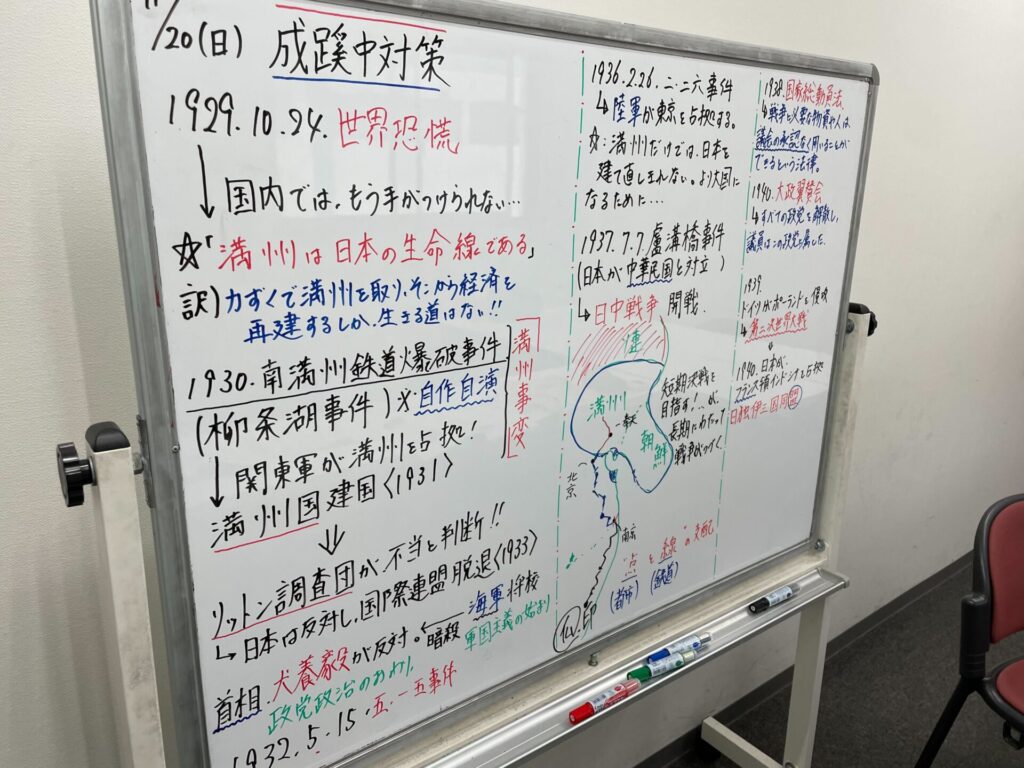 11/20(日) 成蹊中対策
1929.10.24. 世界恐慌
国内では、もう手がつけられない…
☆「満州は日本の生命線である」
訳)力ずくで満州を取り、そこから経済を
再建するしか、生きる道はない!!
1930.南満州鉄道爆破事件
(柳条湖事件)※自作自演
「満州事変」
関東軍が満州を占拠!
満州国建国〈1931〉
リットン調査団が、不当と判断!!
↳日本は反対し、国際連盟脱退〈1933〉
首相.犬養毅が反対。←暗殺 海軍将校
政党政治のおわり、
軍国主義の始まり
1932.5.15.五.一五事件
1936.2.26.二.二六事件
↳陸軍が東京を占拠する。
☆:満州だけでは、日本を
建て直しきれない。より大国に
なるために…
1937.7.7.盧溝橋事件
(日本が中華民国と対立)
↳日中戦争 開戦.
ソ連
満州
奉天
朝鮮
北京
南京
仏.印
短期決戦を
目指す!…が、
長期にわたって
戦争がつづく
"点と線"の支配
(都市)
(鉄道)
1938.国家総動員法
↳戦争に必要な物資や人は、
議会の承認なく用いることが
できるという法律。
1940.大政翼賛会
↳すべての政党を解散し、
議員はこの政党に属した.
1939
ドイツがポーランドを侵攻
↳第二次世界大戦
1940.日本が、
フランス領インドシナを占拠
日独伊三国同盟